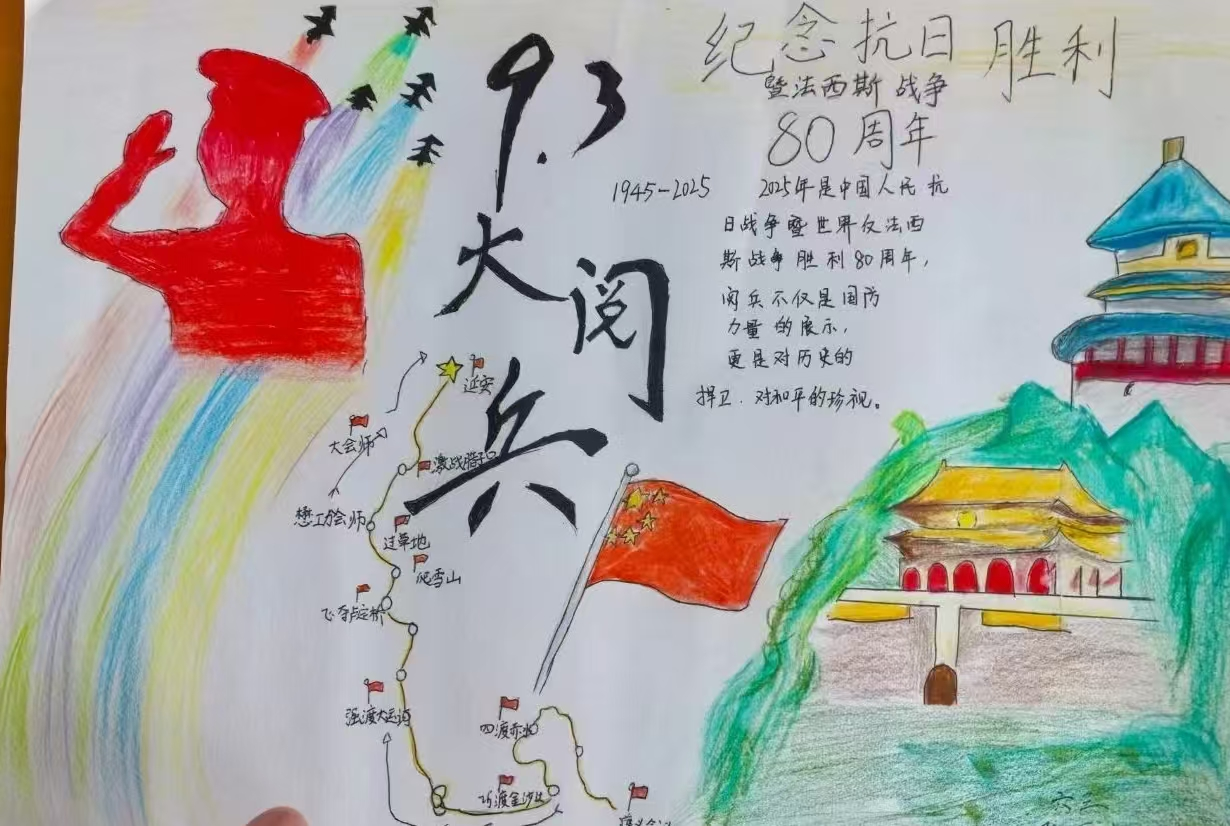 9.3
大阅
兵
纪念抗日胜利
暨法西斯战争
80周年
1945-2025
2025年是中国人民抗
日战争暨世界反法西
斯战争胜利80周年，
阅兵不仅是国防
力量的展示，
更是对历史的
捍卫．对和平的珍视。
延安
大会师
激战腊子口
懋功会师
过草地
爬雪山
飞夺卢定桥
强渡大
四渡赤水
巧渡金沙江
六二